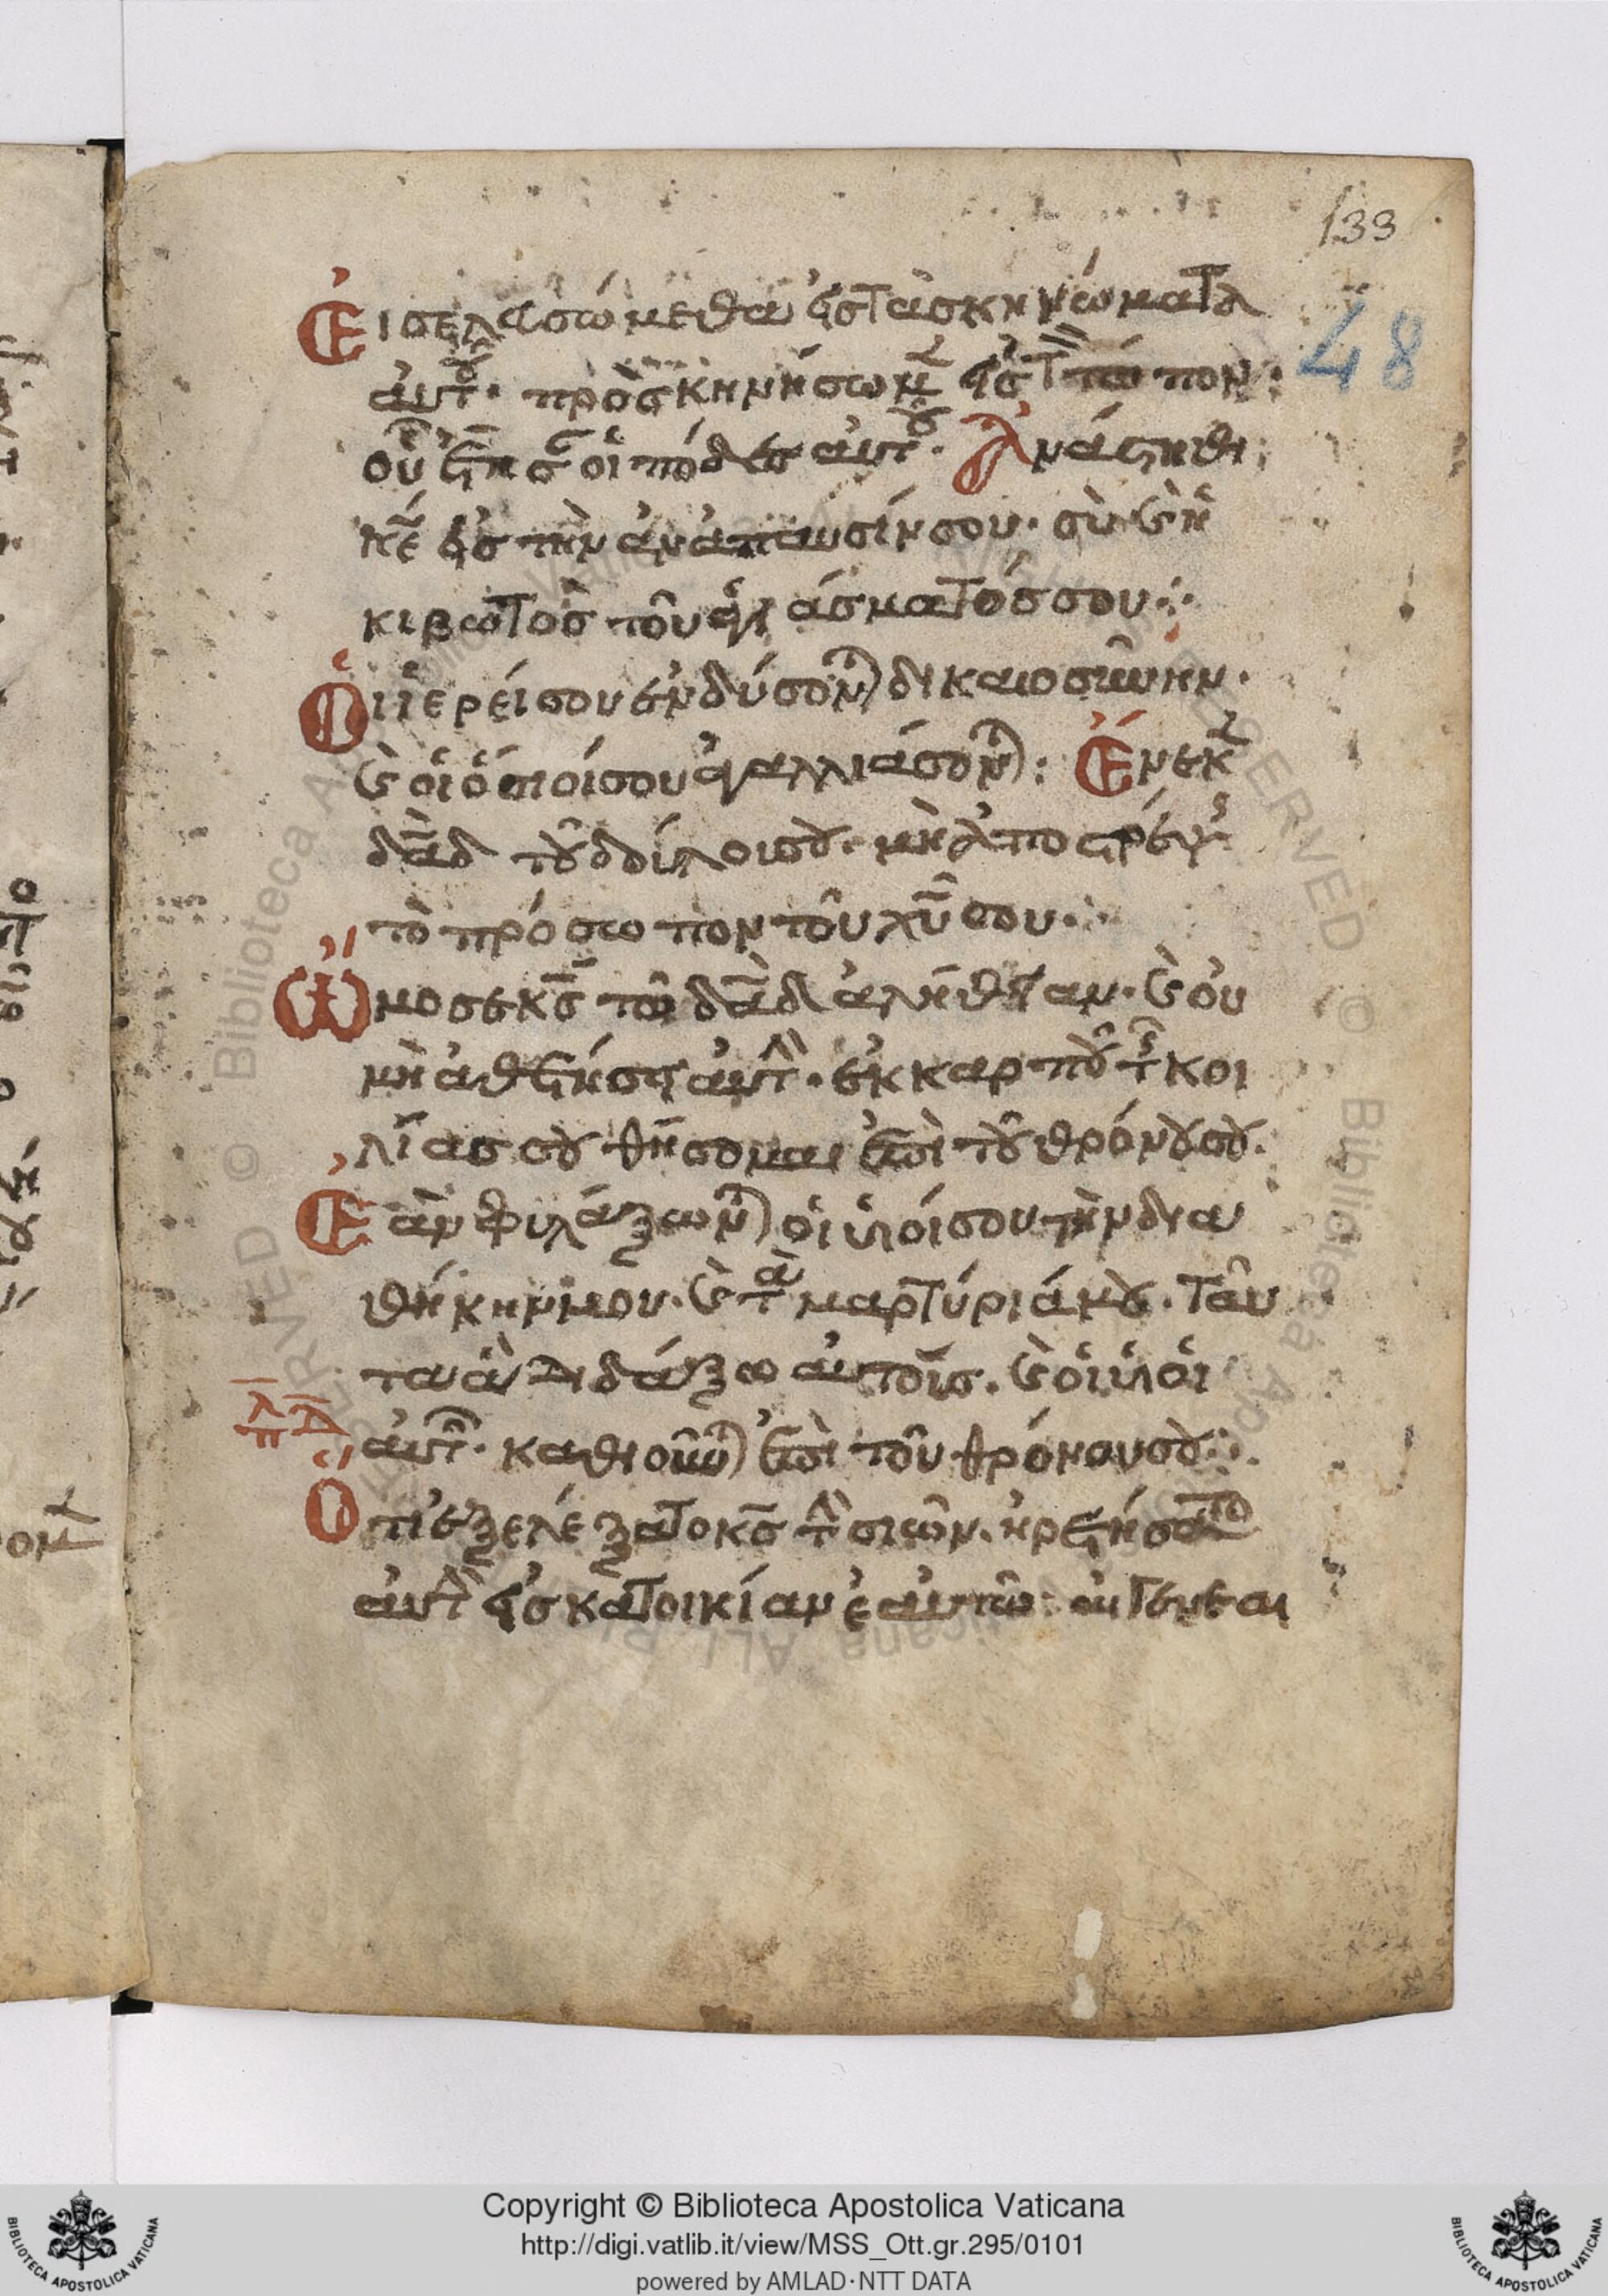 133
48
Ἐισελευσώμεθα εἰς τὰ σκηνώματα
ἀυτοῦ· προσκηνήσωμεν εἰς τὸν τόπον·
οὗ ἔστησαν οἱ πόδες ἀυτοῦ· Ἀνάστηθι
κε εἰς τὴν ἀνάπαυσίν σου· σὺ καὶ ἡ
κιβωτὸς τοῦ ἁγιάσματός σου:·
Ὁι ἱερείσου ἐνδύσονται δικαιοσύνην·
καὶ οἱ ὅσιοίσου ἀγαλλιάσονται: Ἕνεκεν
δαδ τοῦ δούλουσου· μὴ ἀποστρέψεις
τὸ πρόσωπον τοῦ χυ σου·
Ὤμοσε κς τῶ δαδ ἀλήθειαν· καὶ οὐ
μὴ ἀθετήσει ἀυτὴν· ἐκ καρποῦ τῆς κοι
λίας σου θήσομαι ἐπὶ τοῦ θρόνουσου·
Ἐὰν φυλάξωνται οἱ ὑιοίσου τὴν δια
θήκηνμου· καὶ τὰ μαρτύριάμου· ταῦ
τα ἃ διδάξω ἀυτοῖς. καὶ οἱ ὑιοὶ
ἀυτῶν· καθιοῦνται ἐπὶ τοῦ θρόνουσου:·
Ὅτι ἐξελέξατο κς τὴν σιὼν· ἡρετήσατο
ἀυτὴν εἰς κατοικίαν ἑαυτῶ·
Copyright © Biblioteca Apostolica Vaticana
http://digi.vatlib.it/view/MSS_Ott.gr.295/0101
powered by AMLAD·NTT DATA
BIBLIOTECA APOSTOLICA VATICANA
BIBLIOTECA APOSTOLICA VATICANA